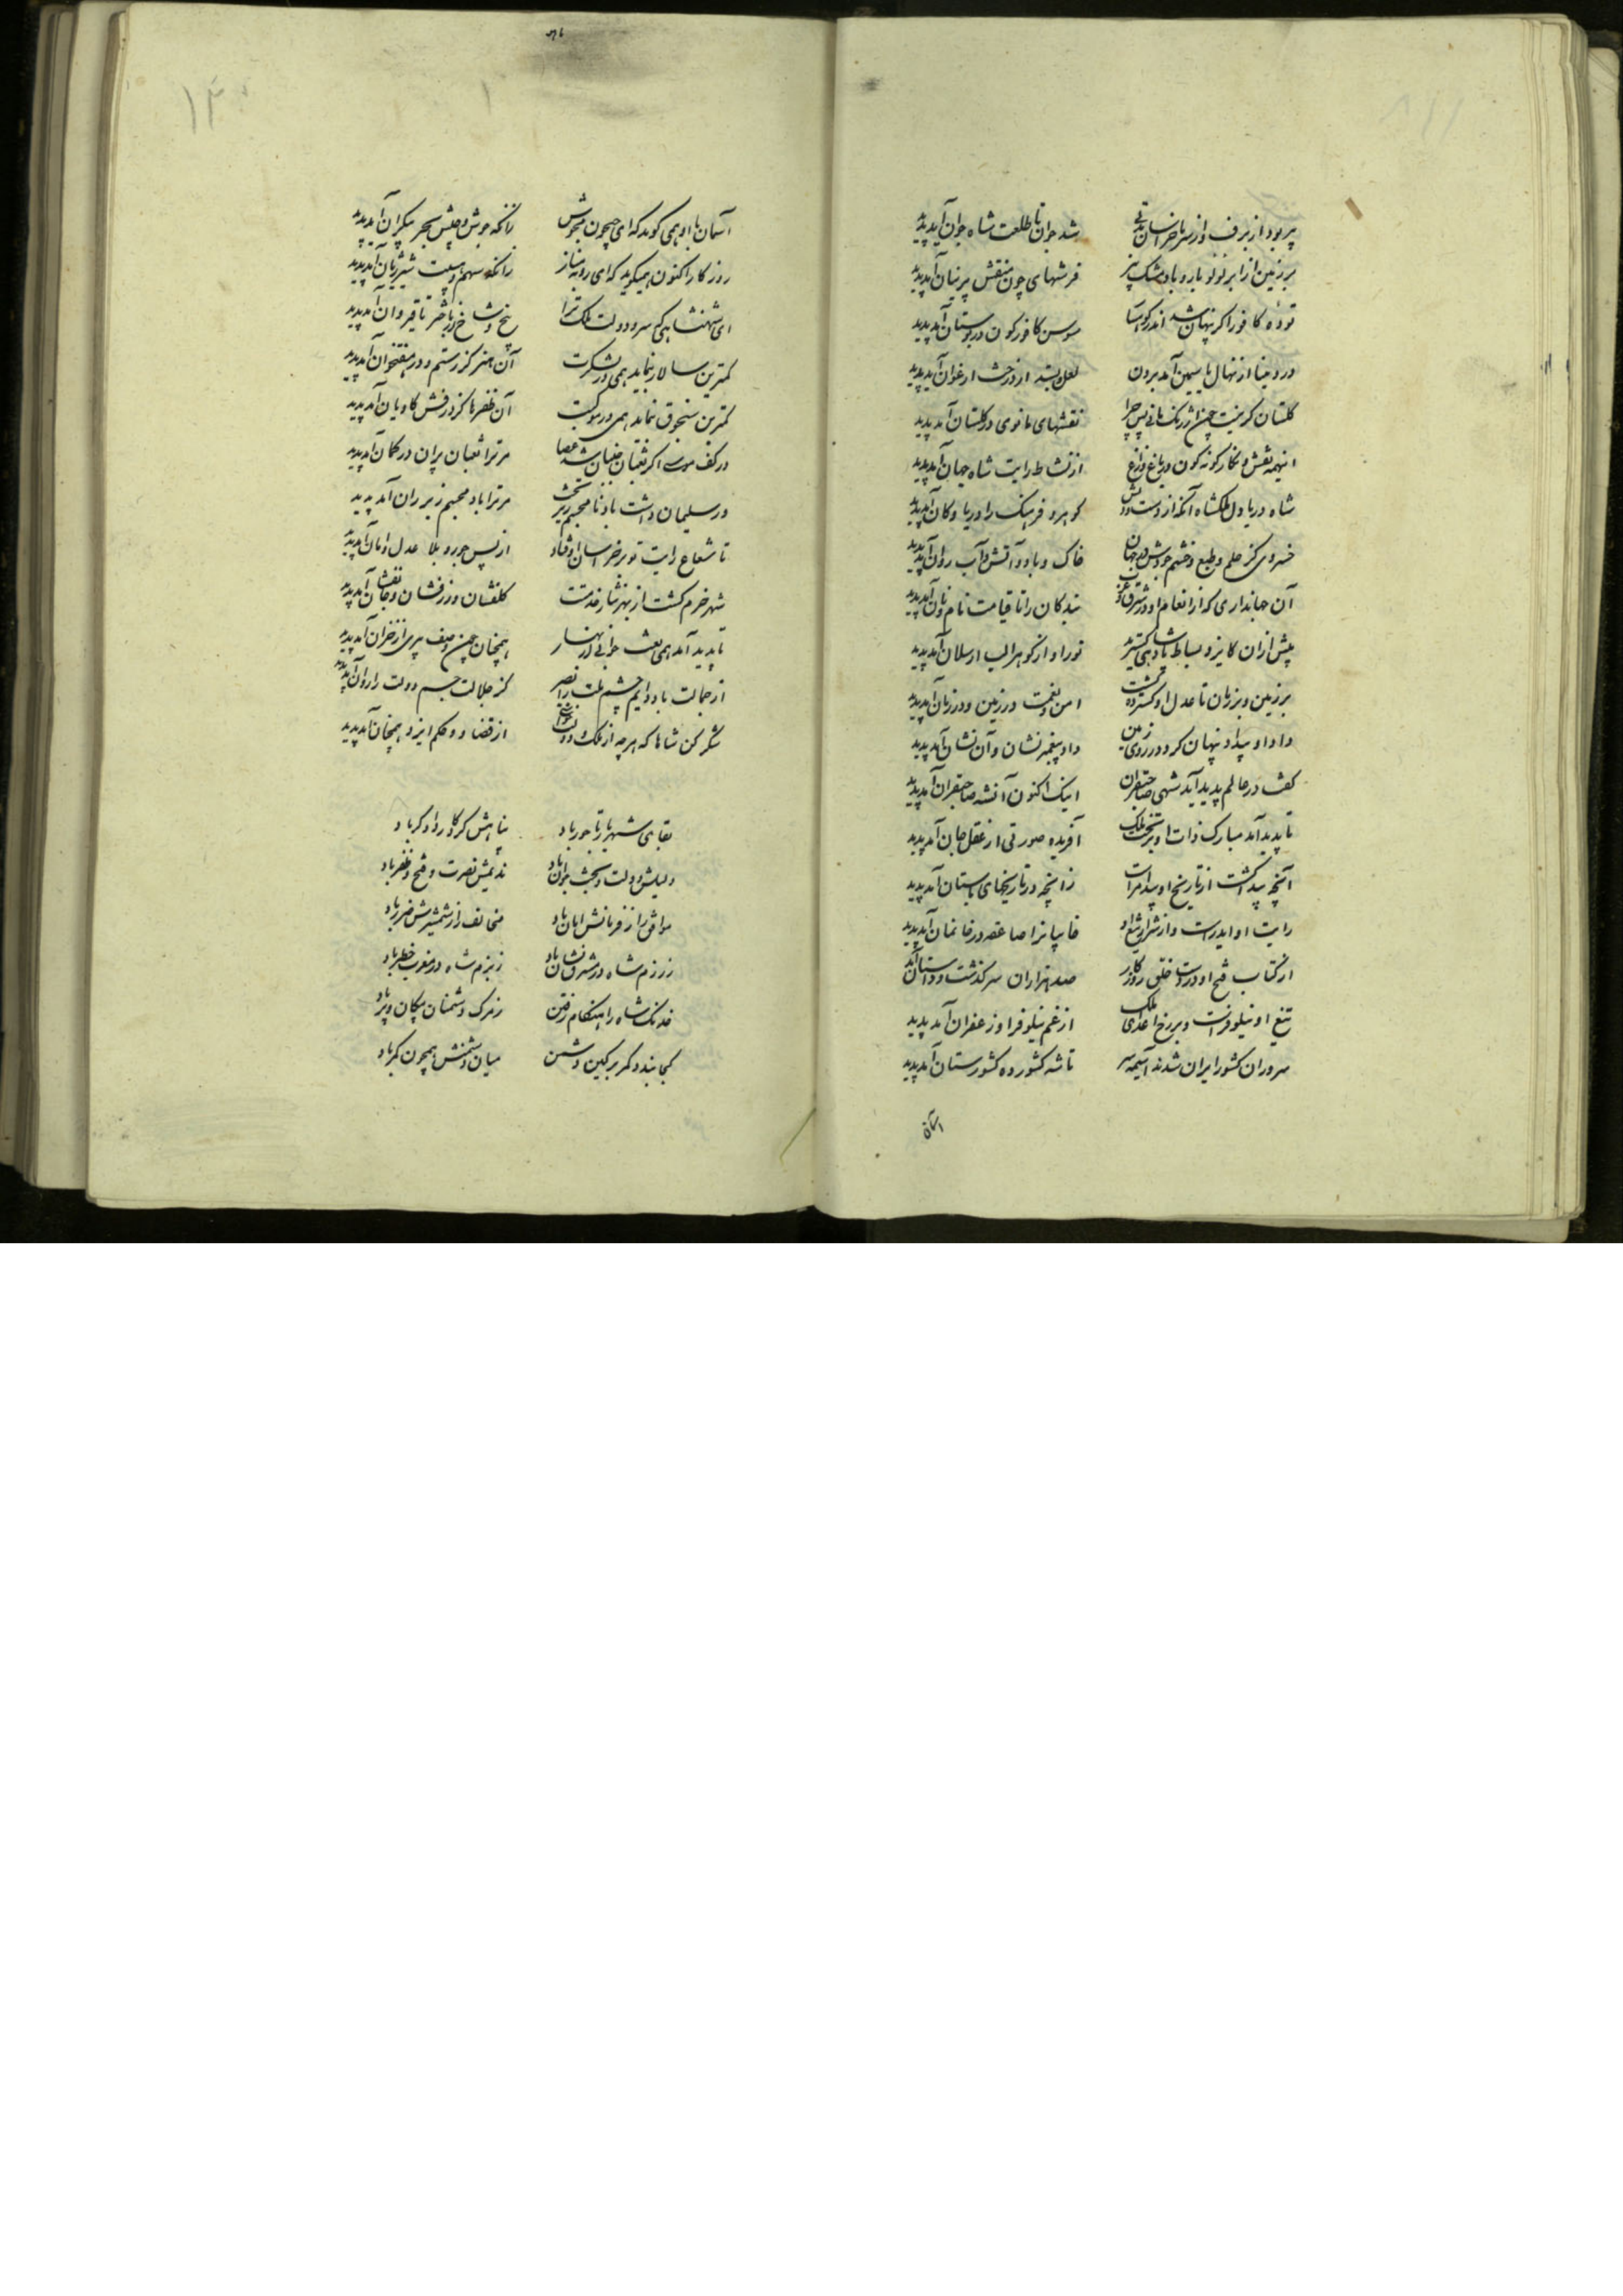 پیر بود از برف و از سرما خراسان تا بدی شد جوان تا طلعت شاه جوان آمد پدید
بر زمین از ابر لولو بار و باد مشک بیز فرشهای چون منقش پرنیان آمد پدید
توده کافور اگر پنهان شد اندر کوهسار سوسن کافور کون در بوستان آمد پدید
در و مینا از نهال یاسمین آمد برون لعل و بسد از درخت ارغوان آمد پدید
کلستان کر نیست چین ارژنک مانی پس چرا نقشهای مانوی در کلستان آمد پدید
اینهمه نقش و نکار کونه کون در باغ و راغ از نشاط رایت شاه جهان آمد پدید
شاه دریا دل ملکشاه آنکه از دست و دلش کوهر و فرهنک را دریا و کان آمد پدید
خسروی کز حلم و طبع و خشم و جودش در جهان خاک و باد و آتش و آب روان آمد پدید
آن جهانداری که از انعام او در شرق و غرب بندکان را تا قیامت نام و نان آمد پدید
پیش ازان کایزد بساط پادشاهی کسترید نور او از کوهر الب ارسلان آمد پدید
بر زمین و بر زمان تا عدل او کسترده کشت امن و نعمت در زمین و در زمان آمد پدید
داد او بیداد پنهان کرد در روی زمین داد پیغمبر نشان و آن نشان آمد پدید
کفت در عالم پدید آید شهی صاحبقران اینک اکنون آنشه صاحبقران آمد پدید
تا پدید آمد مبارک ذات او بر تخت ملک آفریده صورتی از عقل و جان آمد پدید
آنچه پیدا کشت از تاریخ او پیداتر است زانچه در تاریخهای باستان آمد پدید
رایت او ایدرست و از شرار تیغ او خانیانرا صاعقه در خانمان آمد پدید
از کتاب فتح او در دست خلق روزکار صد هزاران سرکذشت و داستان آمد
تیغ او نیلوفرست و بر رخ اعدای ملک از غم نیلوفر او زعفران آمد پدید
سروران کشور ایران شدند آسیمه سر تا شه کشور ده کشورستان آمد پدید
آسمان
آسمان با او همی کوید که ای جیحون مجوش زانکه جوش و جیش بحر بیکران آمد پدید
روزکار اکنون همیکوید که ای روبه مناز زانکه سهم و هیبت شیر ژیان آمد پدید
ای شهنشاهی که سرو دولت و ملک ترا بیخ و شاخ در باختر تا قیروان آمد پدید
کمترین سالار بنماید همی در لشکرت آن هنر کز رستم و در هفتخوان آمد پدید
کمترین سنجوق بنماید همی در موکبت آن ظفرها کز درفش کاویان آمد پدید
در کف موسی اکر ثعبان جنبان شد عصا مر ترا ثعبان پران در کمان آمد پدید
ور سلیمان داشت باد نامجسم زیر تخت مر ترا باد مجسم زیر ران آمد پدید
تا شعاع رایت تو بر خراسان اوفتاد از پس جور و بلا عدل و امان آمد پدید
شهر خرم کشت از بهر نثار خدمتت کلفشان و زرفشان و جانفشان آمد پدید
تا پدید آمد همی نعت جوانی از بهار همچنان چون وصف پیری از خزان آمد پدید
از جمالت باد دایم چشم ملت را بصر کز جلالت جسم دولت را روان آمد پدید
شکر کن شاها که هر چه از ملک و دولت خواستی از قضا و حکم ایزد همچنان آمد پدید
بقای شهریار تاجور باد پناهش کردکار دادکر باد
دلیلش دولت و بخت جوان باد ندیمش نصرت و فتح و ظفر باد
موافق را ز فرمانش امان باد مخالف را ز شمشیرش ضرر باد
ز رزم شاه در مشرق نشان باد ز بزم شاه در مغرب خطر باد
خدنک شاه را هنکام رفتن ز مرک دشمنان پیکان و پر باد
کجا بندد کمر بر کین دشمن میان دشمنش همچون کمر باد